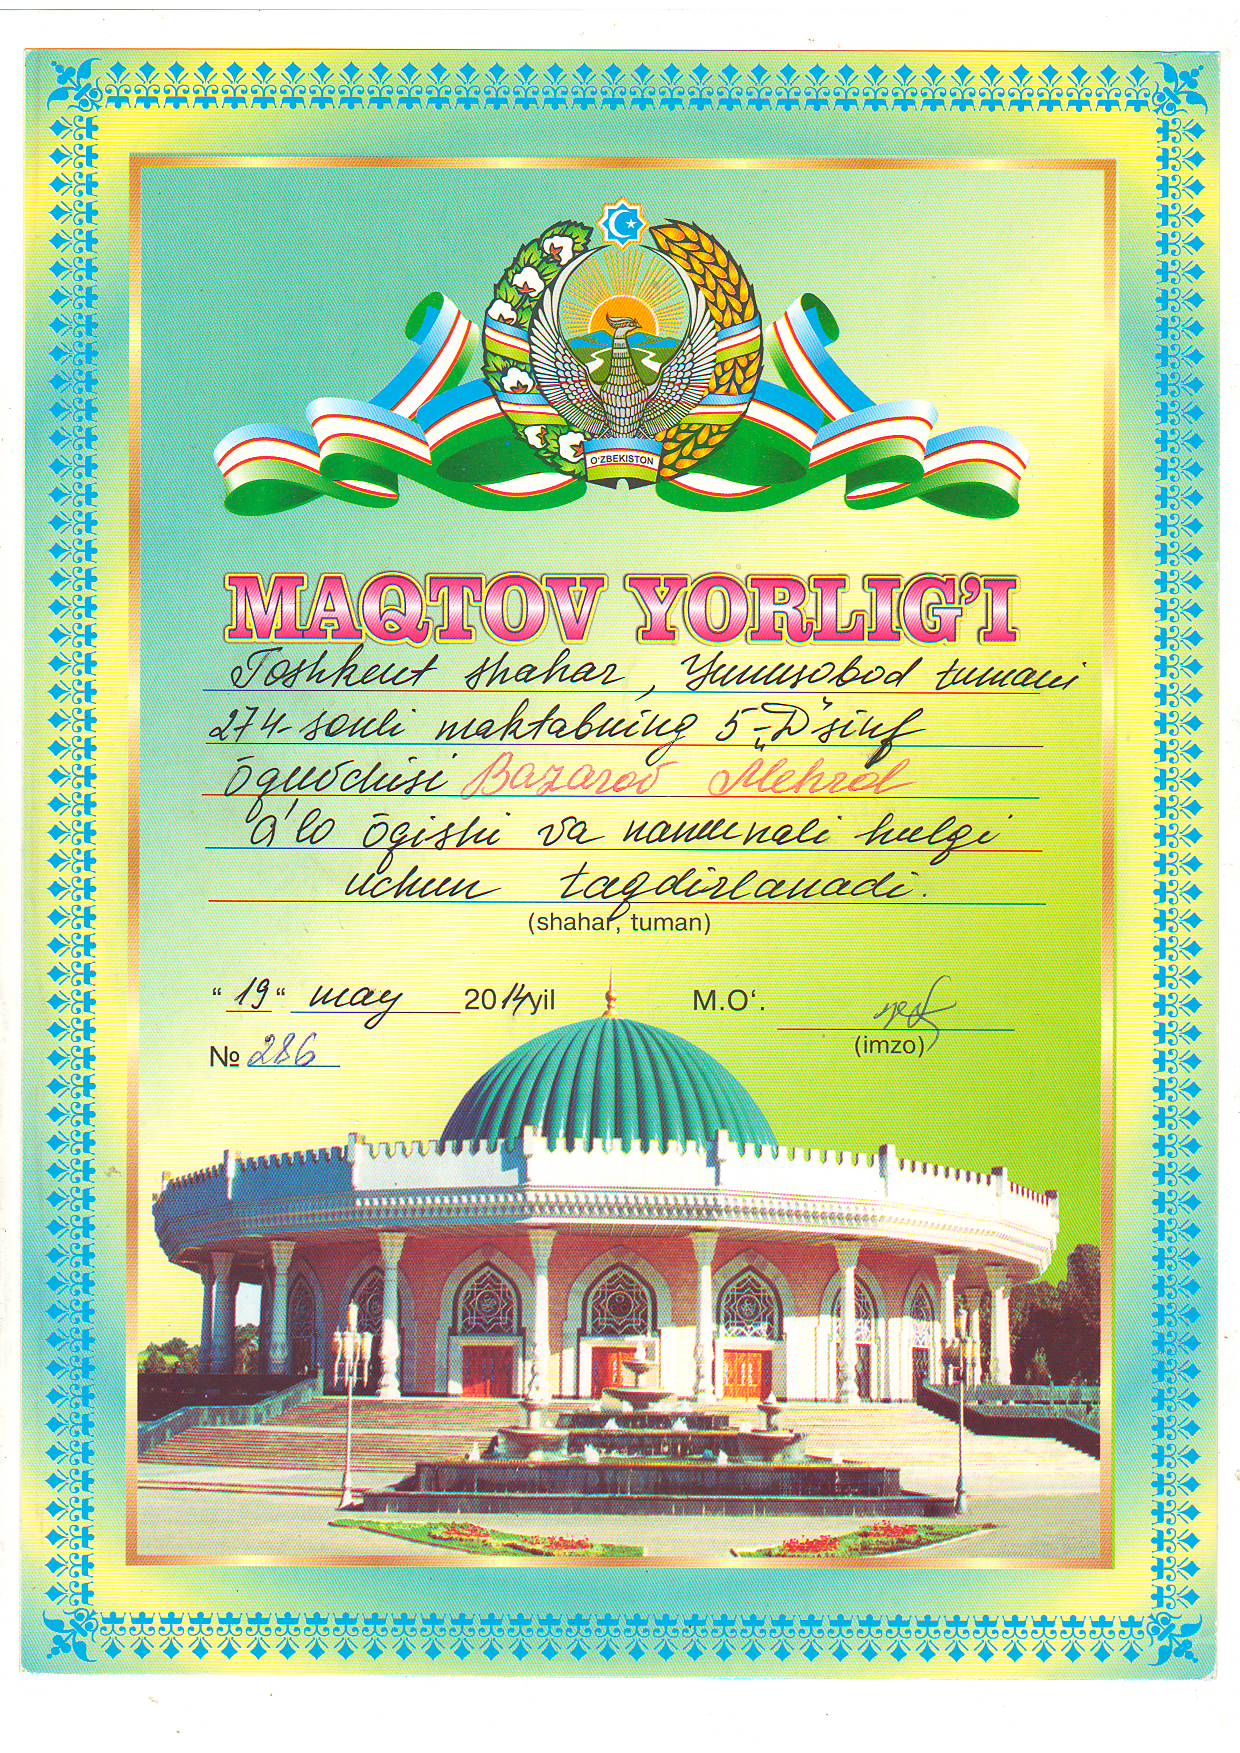 O'ZBEKISTON
MAQTOV YORLIG'I
Toshkent shahar, Yunusobod tumani
274-sonli maktabning 5-„D" sinf
õquvchisi Bazarov Mehrol
a'lo õqishi va namunali hulqi
uchun taqdirlanadi.
(shahar, tuman)
“19“ may 2014 yil M.O‘.
(imzo)
№ 286